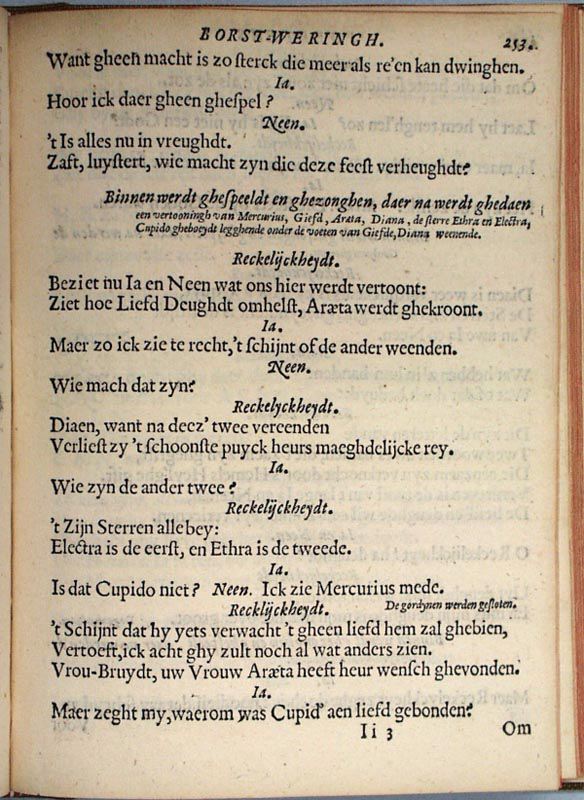 BORST-WERINGH. 253.
Want gheen macht is zo sterck die meer als re'en kan dwinghen.
Ia.
Hoor ick daer gheen ghespel?
Neen.
't Is alles nu in vreughdt.
Zaft, luystert, wie macht zyn die deze feest verheughdt?
Binnen werdt ghespeeldt en ghezonghen, daer na werdt ghedaen
een vertooningh van Mercurius, Giefd, Aræta, Diana, de sterre Ethra en Electra,
Cupido gheboeydt legghende onder de voeten van Giefde, Diana weenende.
Reckelijckheydt.
Beziet nu Ia en Neen wat ons hier werdt vertoont:
Ziet hoe Liefd Deughdt omhelst, Aræta werdt ghekroont.
Ia.
Maer zo ick zie te recht, 't schijnt of de ander weenden.
Neen.
Wie mach dat zyn?
Reckelyckheydt.
Diaen, want na deez' twee vereenden
Verliest zy 't schoonste puyck heurs maeghdelijcke rey.
Ia.
Wie zyn de ander twee?
Reckelijckheydt.
't Zijn Sterren alle bey:
Electra is de eerst, en Ethra is de tweede.
Ia.
Is dat Cupido niet? Neen. Ick zie Mercurius mede.
Recklijckheydt. De gordynen werden gesloten.
't Schijnt dat hy yets verwacht 't gheen liefd hem zal ghebien,
Vertoeft, ick acht ghy zult noch al wat anders zien.
Vrou-Bruydt, uw Vrouw Aræta heeft heur wensch ghevonden.
Ia.
Maer zeght my, waerom was Cupid' aen liefd gebonden?
Ii 3 Om